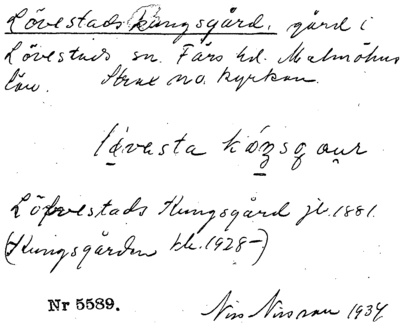 Lövestads kungsgård, gård i
Lövestads sn. Färs hd. Malmöhus
län. Strax no. kyrkan.
Lövestads Kungsgård jb. 1881.
(Kungsgården bk. 1928-)
Nr 5589.
Nils Nilsson 1934